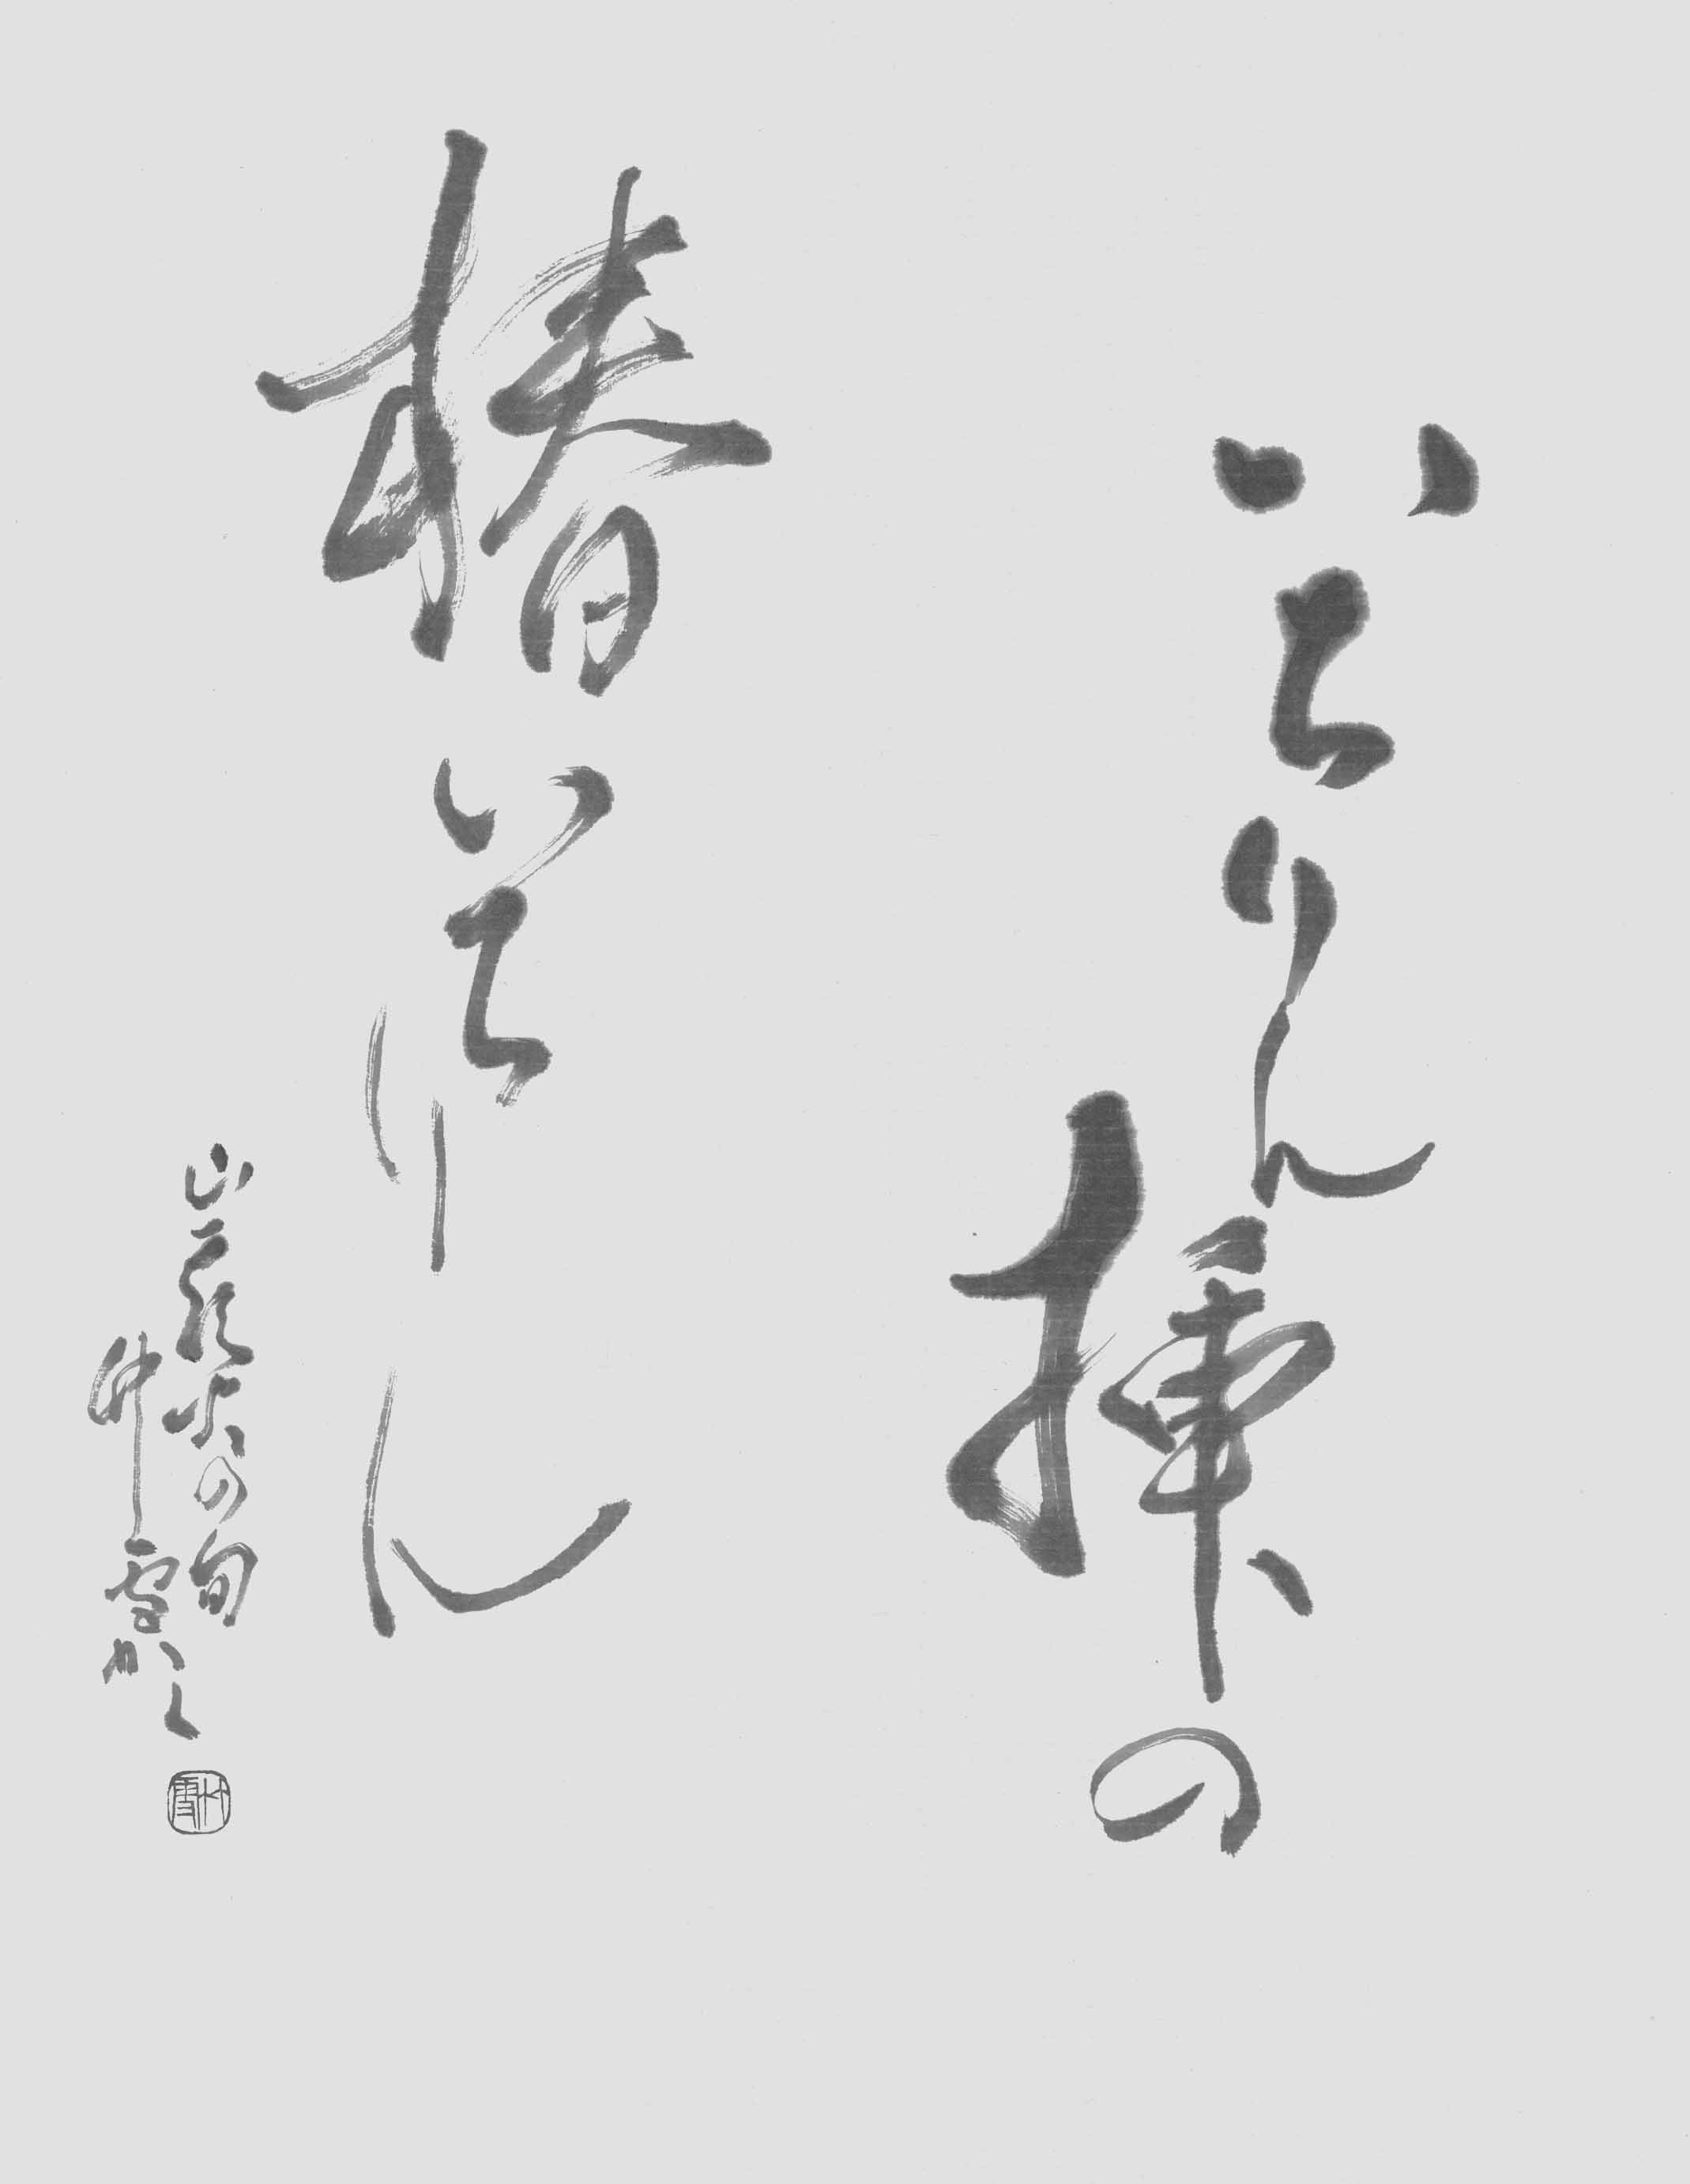 いちりん挿の
椿いちりん
山頭火の句
竹雪かく
竹雪